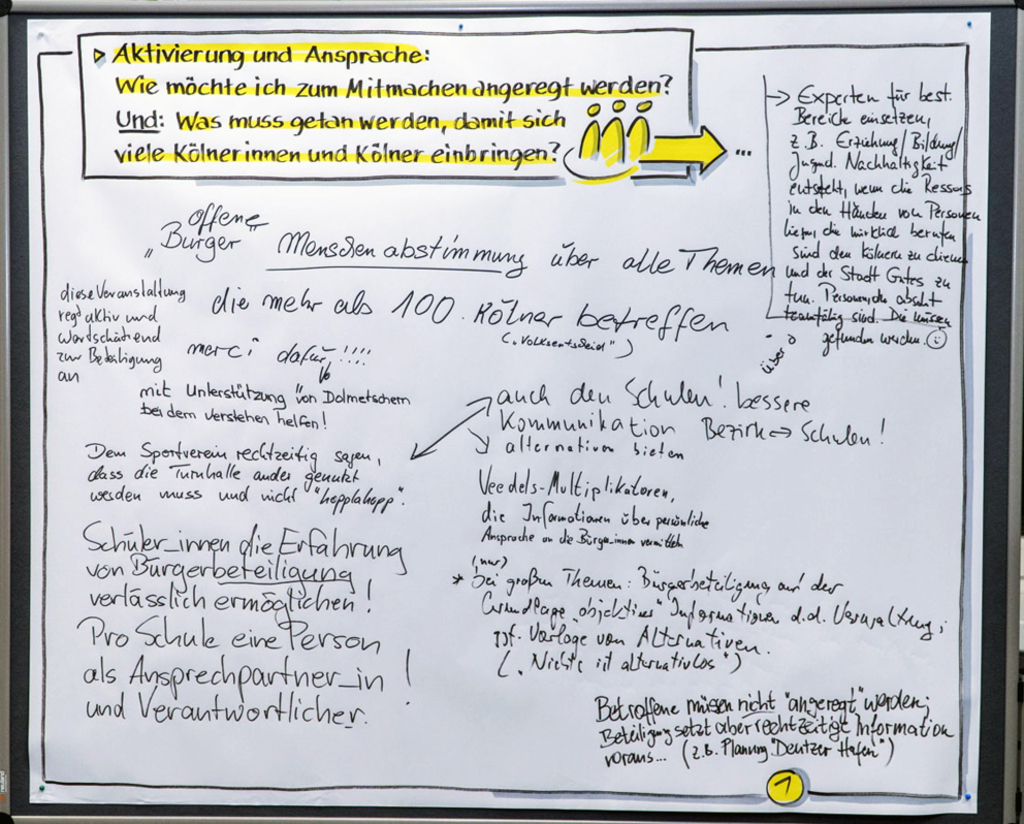 Aktivierung und Ansprache:
Wie möchte ich zum Mitmachen angeregt werden?
Und: Was muss getan werden, damit sich
viele Kölnerinnen und Kölner einbringen?
...
→ Experten für best.
Bereiche einsetzen,
z.B. Erziehung/Bildung/
Jugend. Nachhaltigkeit
entsteht, wenn die Ressorts
in den Händen von Personen
liegen, die wirklich berufen
sind den Kölnern zu dienen
und der Stadt Gutes zu
tun. Personen, die absolut
teamfähig sind. Die müssen
gefunden werden.
offene
"Bürger"
Menschenabstimmung über alle Themen
die mehr als 100. Kölner betreffen
("Volksentscheid")
diese Veranstaltung
regt aktiv und
wertschätzend
zur Beteiligung
an
merci dafür!!!!
mit Unterstützung von Dolmetschern
bei dem verstehen helfen!
über
auch den Schulen! bessere
Kommunikation Bezirk ↔ Schulen!
alternativen bieten
Dem Sportverein rechtzeitig sagen,
dass die Turnhalle anders genutzt
werden muss und nicht "hopplahopp".
Veedels-Multiplikatoren,
die Informationen über persönliche
Ansprache an die Bürger_innen vermitteln
Schüler_innen die Erfahrung
von Bürgerbeteiligung
verlässlich ermöglichen!
Pro Schule eine Person
als Ansprechpartner_in !
und Verantwortlicher.
(nur)
* bei großen Themen: Bürgerbeteiligung auf der
Grundlage "objektiver" Informationen d.d. Verwaltung;
ggf. Vorlage von Alternativen.
("Nichts ist alternativlos")
Betroffene müssen nicht "angeregt" werden;
Beteiligung setzt aber rechtzeitige Information
voraus... (z.B. Planung "Deutzer Hafen")
1